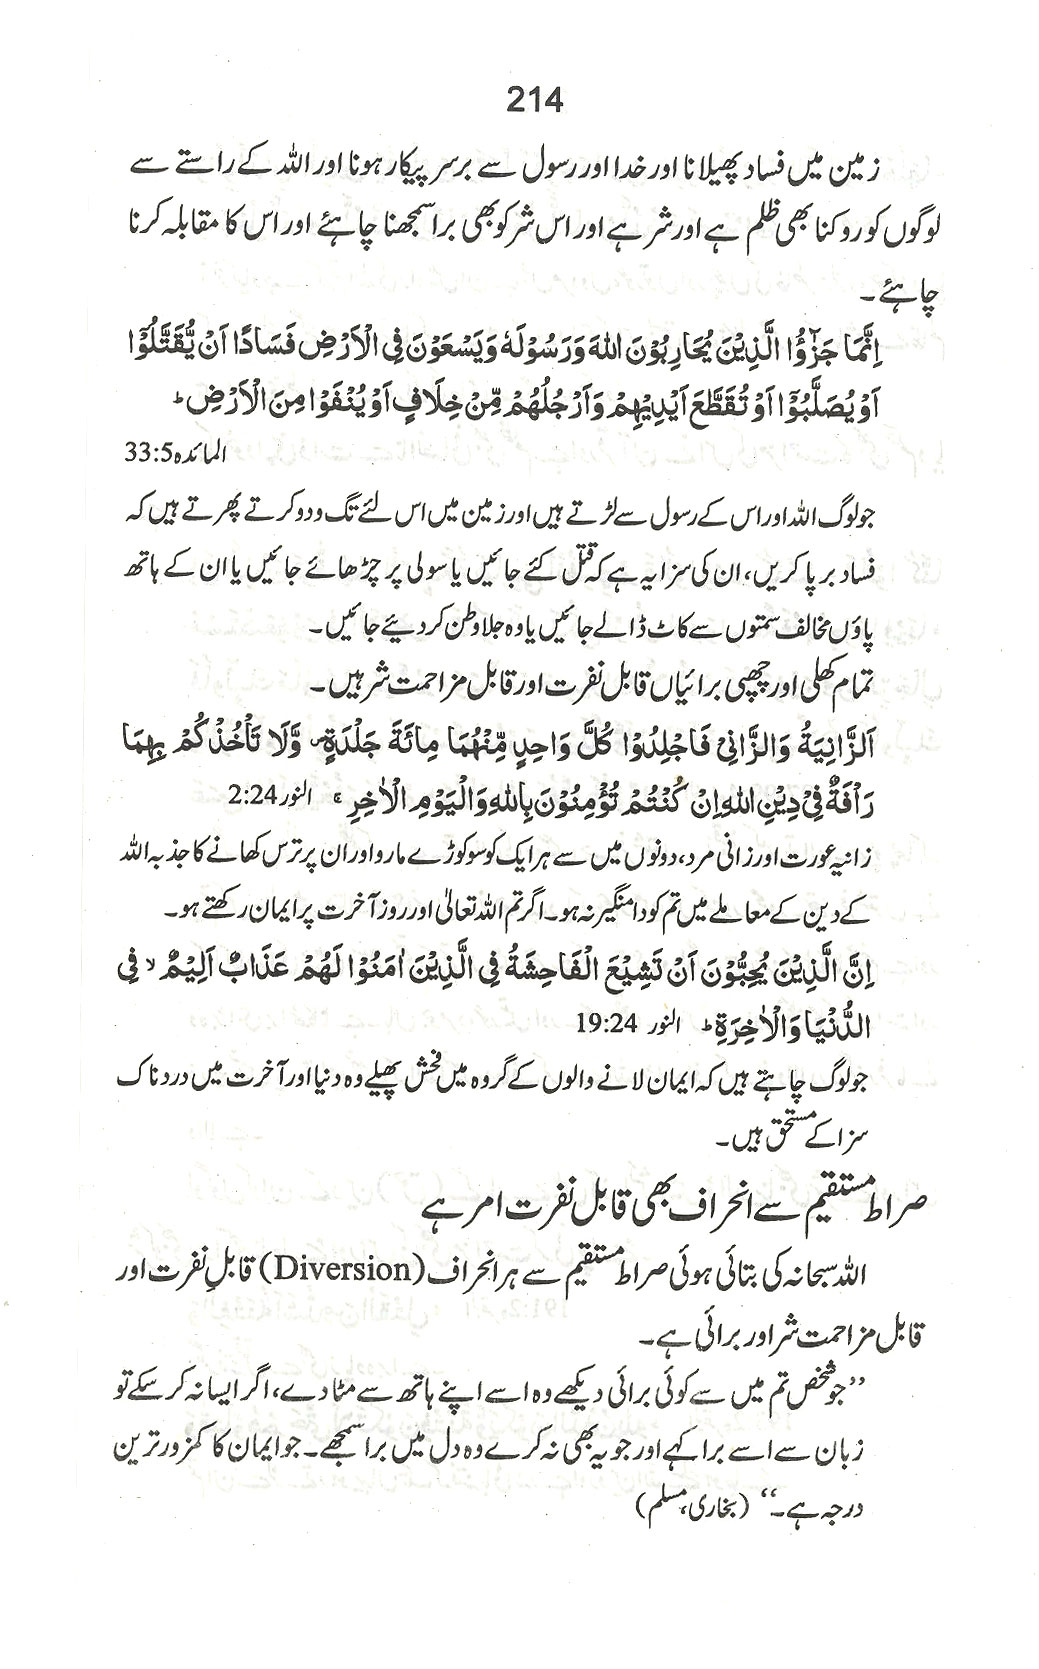 214
زمین میں فساد پھیلانا اور خدا اور رسول سے برسر پیکار ہونا اور اللہ کے راستے سے
لوگوں کو روکنا بھی ظلم ہے اور شر ہے اور اس شر کو بھی برا سمجھنا چاہئے اور اس کا مقابلہ کرنا
چاہئے۔
اِنَّمَا جَزٰٓؤُا الَّذِيْنَ يُحَارِبُوْنَ اللّٰهَ وَرَسُوْلَهٗ وَيَسْعَوْنَ فِى الْاَرْضِ فَسَادًا اَنْ يُّقَتَّلُوْٓا
اَوْ يُصَلَّبُوْٓا اَوْ تُقَطَّعَ اَيْدِيْهِمْ وَاَرْجُلُهُمْ مِّنْ خِلَافٍ اَوْ يُنْفَوْا مِنَ الْاَرْضِ ؕ
المائدہ 33:5
جو لوگ اللہ اور اس کے رسول سے لڑتے ہیں اور زمین میں اس لئے تگ و دو کرتے پھرتے ہیں کہ
فساد برپا کریں، ان کی سزا یہ ہے کہ قتل کئے جائیں یا سولی پر چڑھائے جائیں یا ان کے ہاتھ
پاؤں مخالف سمتوں سے کاٹ ڈالے جائیں یا وہ جلا وطن کر دیئے جائیں۔
تمام کھلی اور چھپی برائیاں قابل نفرت اور قابل مزاحمت شر ہیں۔
اَلزَّانِيَةُ وَالزَّانِىْ فَاجْلِدُوْا كُلَّ وَاحِدٍ مِّنْهُمَا مِائَةَ جَلْدَةٍ ۪ وَّلَا تَاْخُذْكُمْ بِهِمَا
رَاْفَةٌ فِىْ دِيْنِ اللّٰهِ اِنْ كُنْتُمْ تُؤْمِنُوْنَ بِاللّٰهِ وَالْيَوْمِ الْاٰخِرِ ۚ النور 2:24
زانیہ عورت اور زانی مرد، دونوں میں سے ہر ایک کو سو کوڑے مارو اور ان پر ترس کھانے کا جذبہ اللہ
کے دین کے معاملے میں تم کو دامنگیر نہ ہو۔ اگر تم اللہ تعالیٰ اور روز آخرت پر ایمان رکھتے ہو۔
اِنَّ الَّذِيْنَ يُحِبُّوْنَ اَنْ تَشِيْعَ الْفَاحِشَةُ فِى الَّذِيْنَ اٰمَنُوْا لَهُمْ عَذَابٌ اَلِيْمٌ ۙ فِى
الدُّنْيَا وَالْاٰخِرَةِ ؕ النور 19:24
جو لوگ چاہتے ہیں کہ ایمان لانے والوں کے گروہ میں فحش پھیلے وہ دنیا اور آخرت میں دردناک
سزا کے مستحق ہیں۔
صراط مستقیم سے انحراف بھی قابل نفرت امر ہے
اللہ سبحانہ کی بتائی ہوئی صراط مستقیم سے ہر انحراف (Diversion) قابلِ نفرت اور
قابل مزاحمت شر اور برائی ہے۔
’’جو شخص تم میں سے کوئی برائی دیکھے وہ اسے اپنے ہاتھ سے مٹا دے، اگر ایسا نہ کر سکے تو
زبان سے اسے برا کہے اور جو یہ بھی نہ کرے وہ دل میں برا سمجھے۔ جو ایمان کا کمزور ترین
درجہ ہے۔‘‘ (بخاری، مسلم)